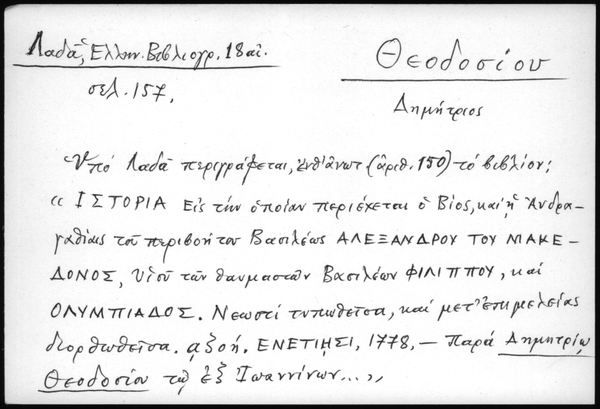 Λαδᾶ, Ἑλλην. Βιβλιογρ. 18 αἰ.
Θεοδοσίου
σελ. 157,
Δημήτριος
Ὑπό Λαδᾶ περιγράφεται, ἔνθ' ἀνωτ (ἀριθ. 150) τό βιβλίον;
« ἹΣΤΟΡΙΑ Εἰς τήν ὁποίαν περιέχεται ὁ Βίος, καί ἡ Ἀνδρα-
γαθίαις τοῦ περιβοήτου Βασιλέως ΑΛΕΞΑΝΔΡΟΥ ΤΟΥ ΜΑΚΕ-
ΔΟΝΟΣ, Υἱοῦ τῶν θαυμαστῶν Βασιλέων ΦΙΛΙΠΠΟΥ, καί
ΟΛΥΜΠΙΑΔΟΣ. Νεωστί τυπωθεῖσα, καί μετ' ἐπιμελείας
διορθωθεῖσα. αψοή. ΕΝΕΤΙΗΣΙ, 1778, — Παρά Δημητρίῳ
Θεοδοσίου τῷ ἐξ Ἰωαννίνων...,,